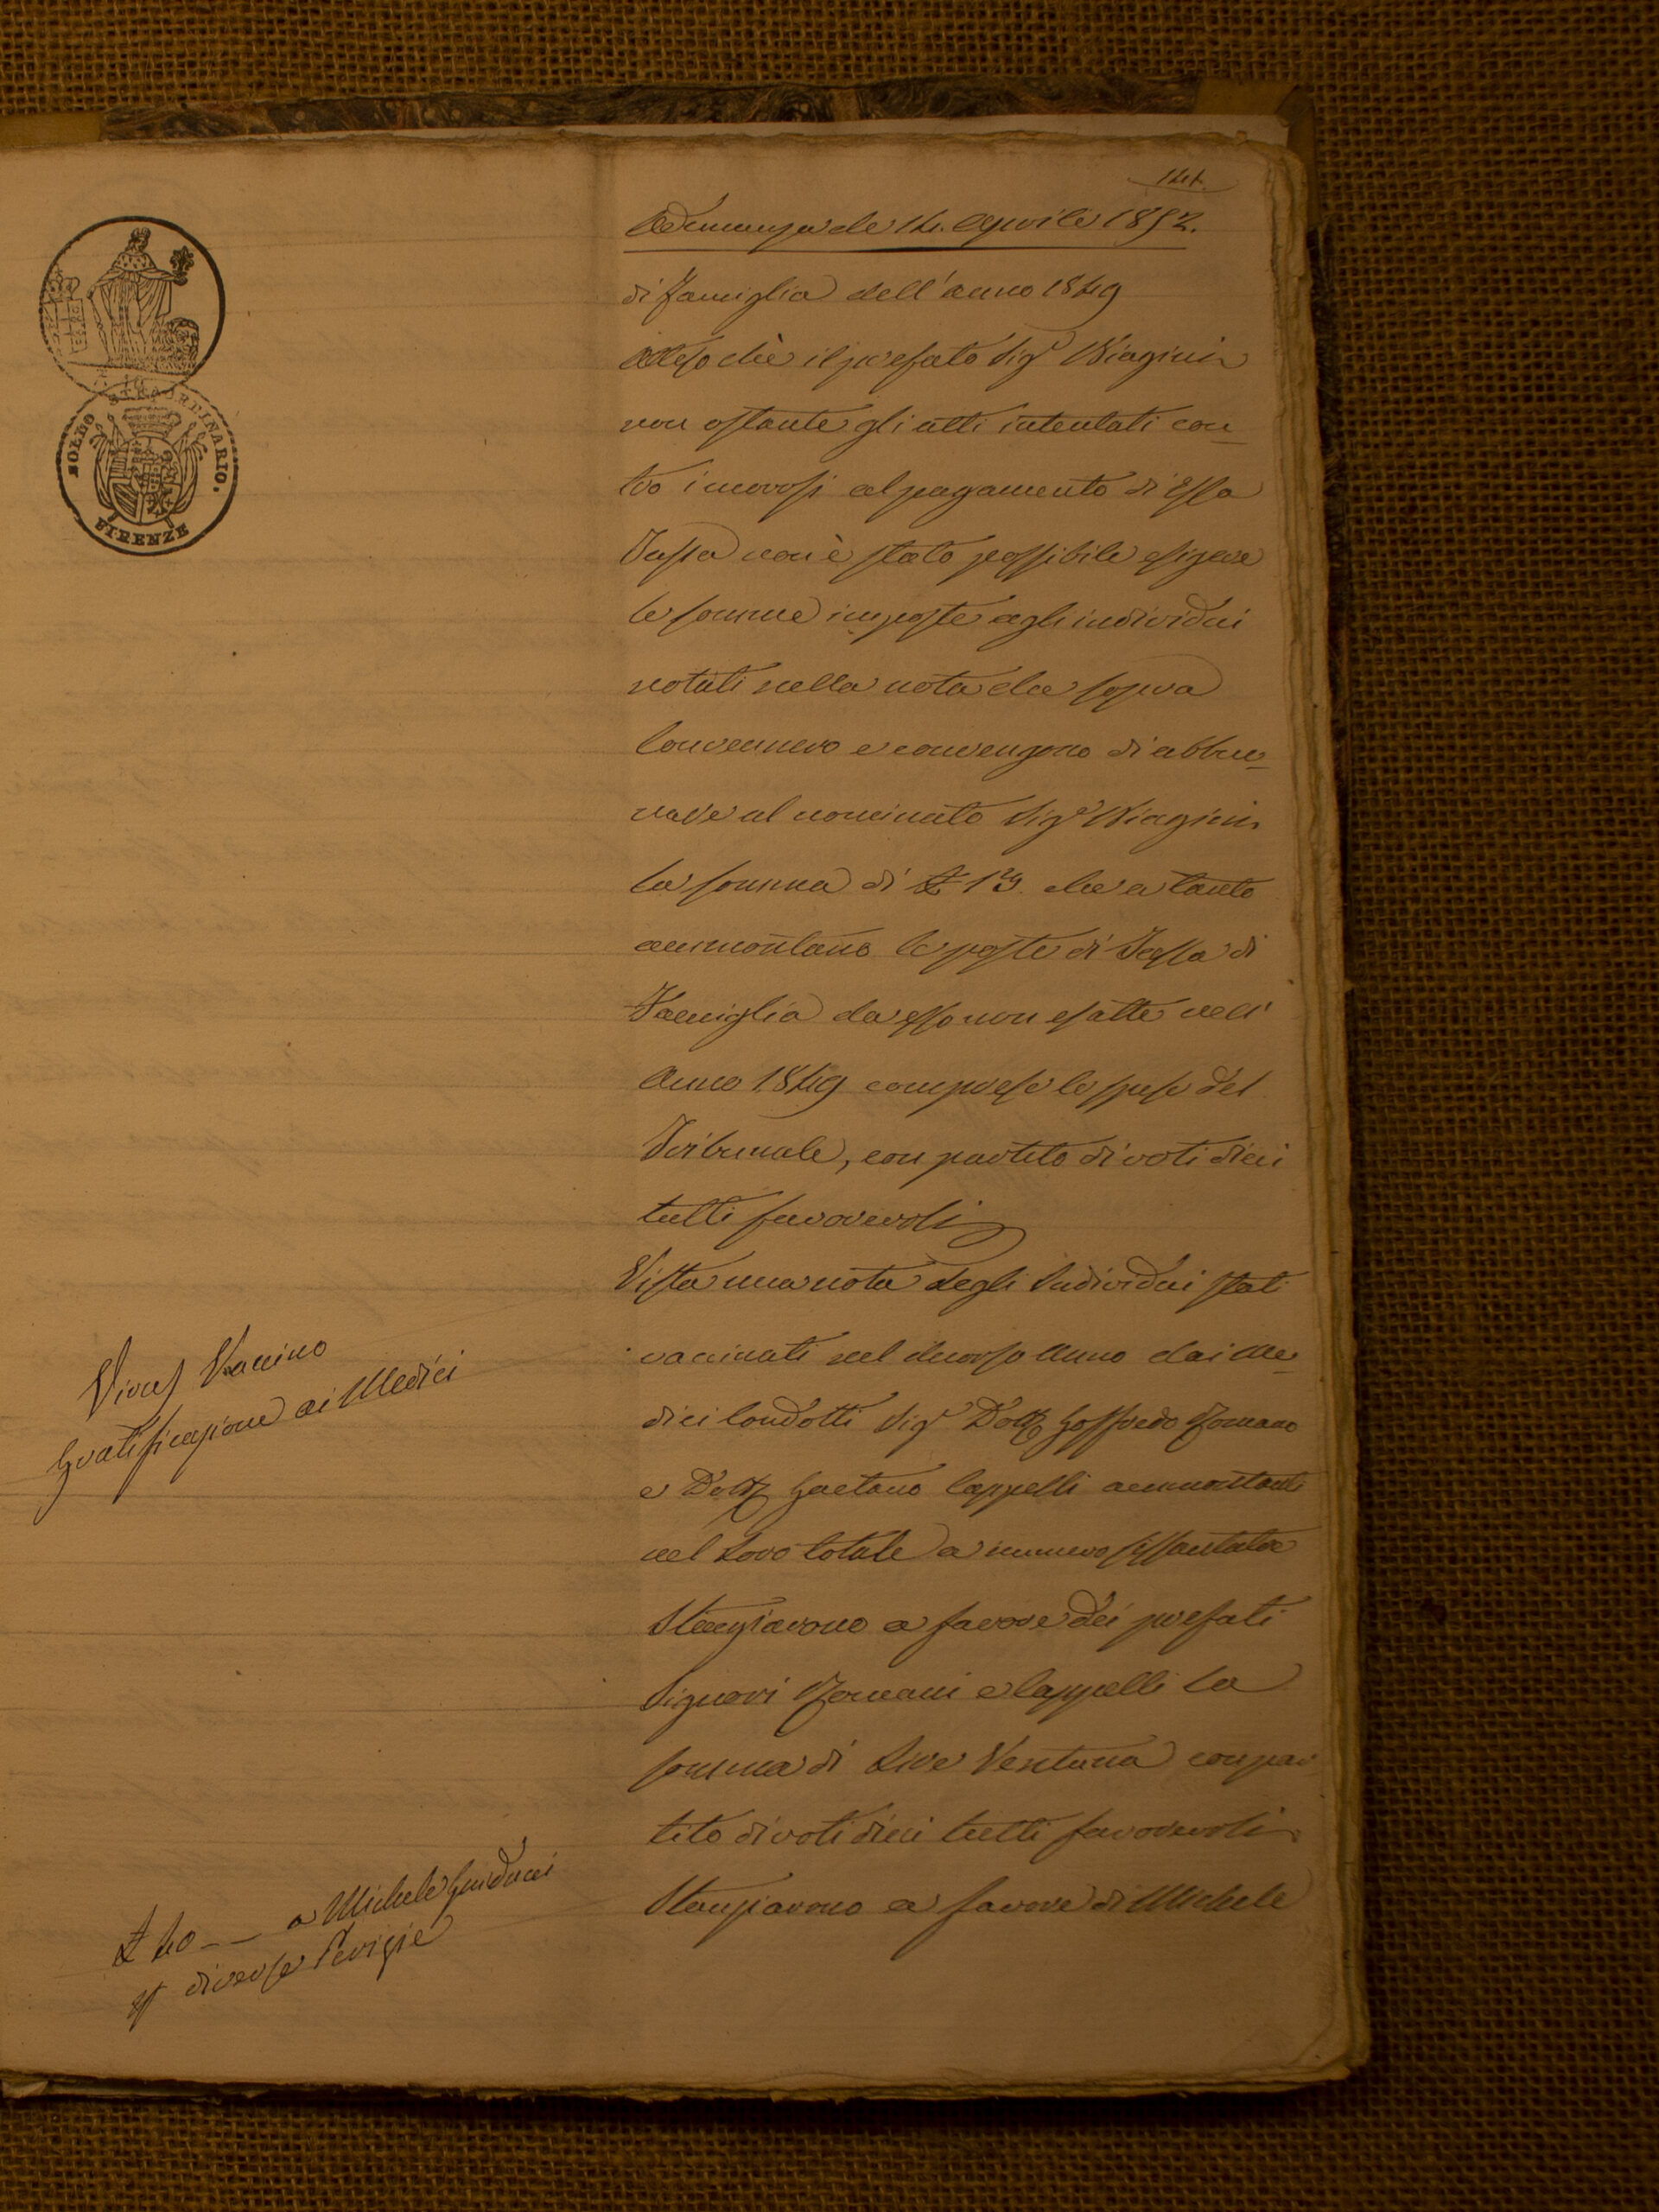 141.
Adunanza de 14. Aprile 1852.
SOLDO STRAORDINARIO.
FIRENZE
di famiglia dell'anno 1849
Atteso chè il prefato Sigr Biagini
non ostante gli atti intentati con_
tro i morosi al pagamento di essa
Tassa non è stato possibile esigere
le somme imposte agli individui
notati nella nota che sopra
Convennero e convengono di abbuo_
nare al nominato Sigr Biagini
la somma di £ 13. che a tanto
ammontano le poste di Tassa di
Famiglia da esso non esatte nell'
Anno 1849 comprese le spese del
Tribunale, con partito di voti dieci
tutti favorevoli
Vista una nota degli Individui stati
vaccinati nel decorso Anno dai Me
dici Condotti Sigr Dott. Goffredo Romano
e Dott. Gaetano Cappelli ammontanti
nel Loro totale a numero sessantatre
Stanziarono a favore dei prefati
Signori Romani e Cappelli la
somma di Lire Ventuna con par
tito di voti dieci tutti favorevoli
Stanziarono a favore di Michele
Vaccino
Gratificazione ai Medici
£ 40 _ _ a Michele Guiducci
diverse Perizie